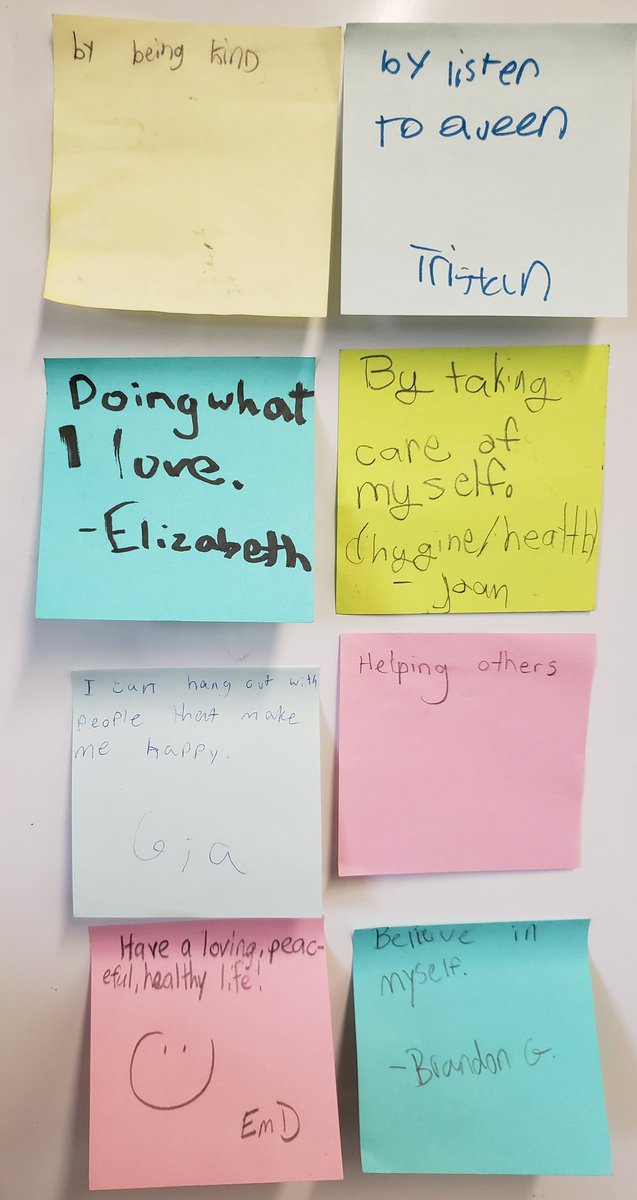 by being kind
by listen
to aueen
Tristan
Doing what
I love.
-Elizabeth
By taking
care of
myself.
(hygine/health)
- Joan
I can hang out with
people that make
me happy.
Gia
Helping others
Have a loving, peac-
eful, healthy life!
Em D
Believe in
myself.
-Brandon G.